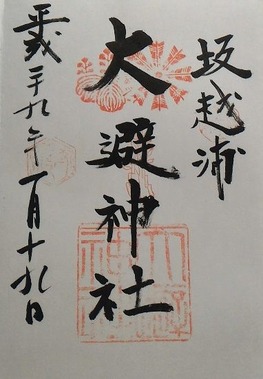 坂越浦
大避神社
平成二十九年一月十九日